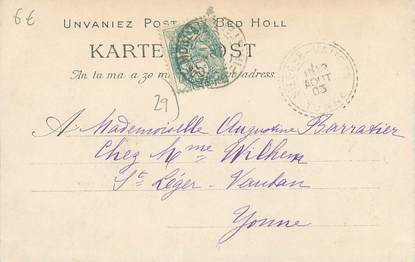 6€
UNVANIEZ POST BED HOLL
KARTE POST
An tu ma a zo m address.
29
A Mademoiselle Augustine Barratier
Chez Mme Wilhem
St Léger-Vauban
Yonne
AOUT
03